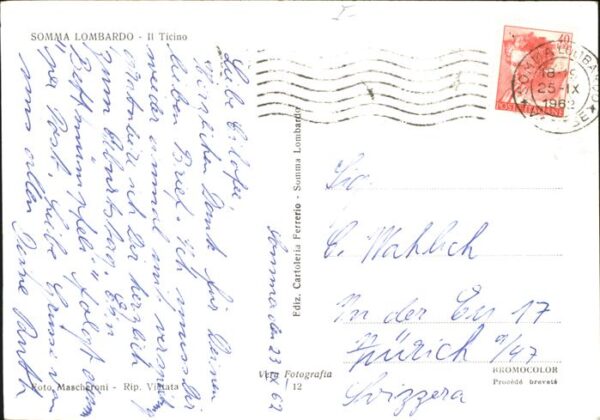 SOMMA LOMBARDO - Il Ticino
Liebe
Herzlichen Dank für Deinen
lieben Brief. Ich muss Dir
wieder einmal
gratuliere ich Dir herzlich
zum Geburtstag. Ein
"Bettmümpfeli" folgt
per Post. Liebe Grüsse von
uns allen Deine
Somma den 23. IX 62
Foto Mascheroni - Rip. Vietata
Ediz. Cartoleria Ferrerio - Somma Lombardo
Vera Fotografia
12
40
SOMMA LOMBARDO
18
25-IX
1962
VARESE
Sig.
E. Wahlich
In der Ey 17
Zürich 9/47
Svizzera
BROMOCOLOR
Procédé breveté